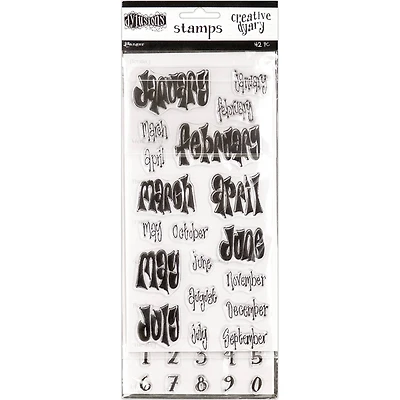 DYLUSIONS stamps creative dyary
Ranger 42 PC
January january
february
march February
april
march april
may October
June
may june November
august December
July july September
1 2 3 4 5
6 7 8 9 0